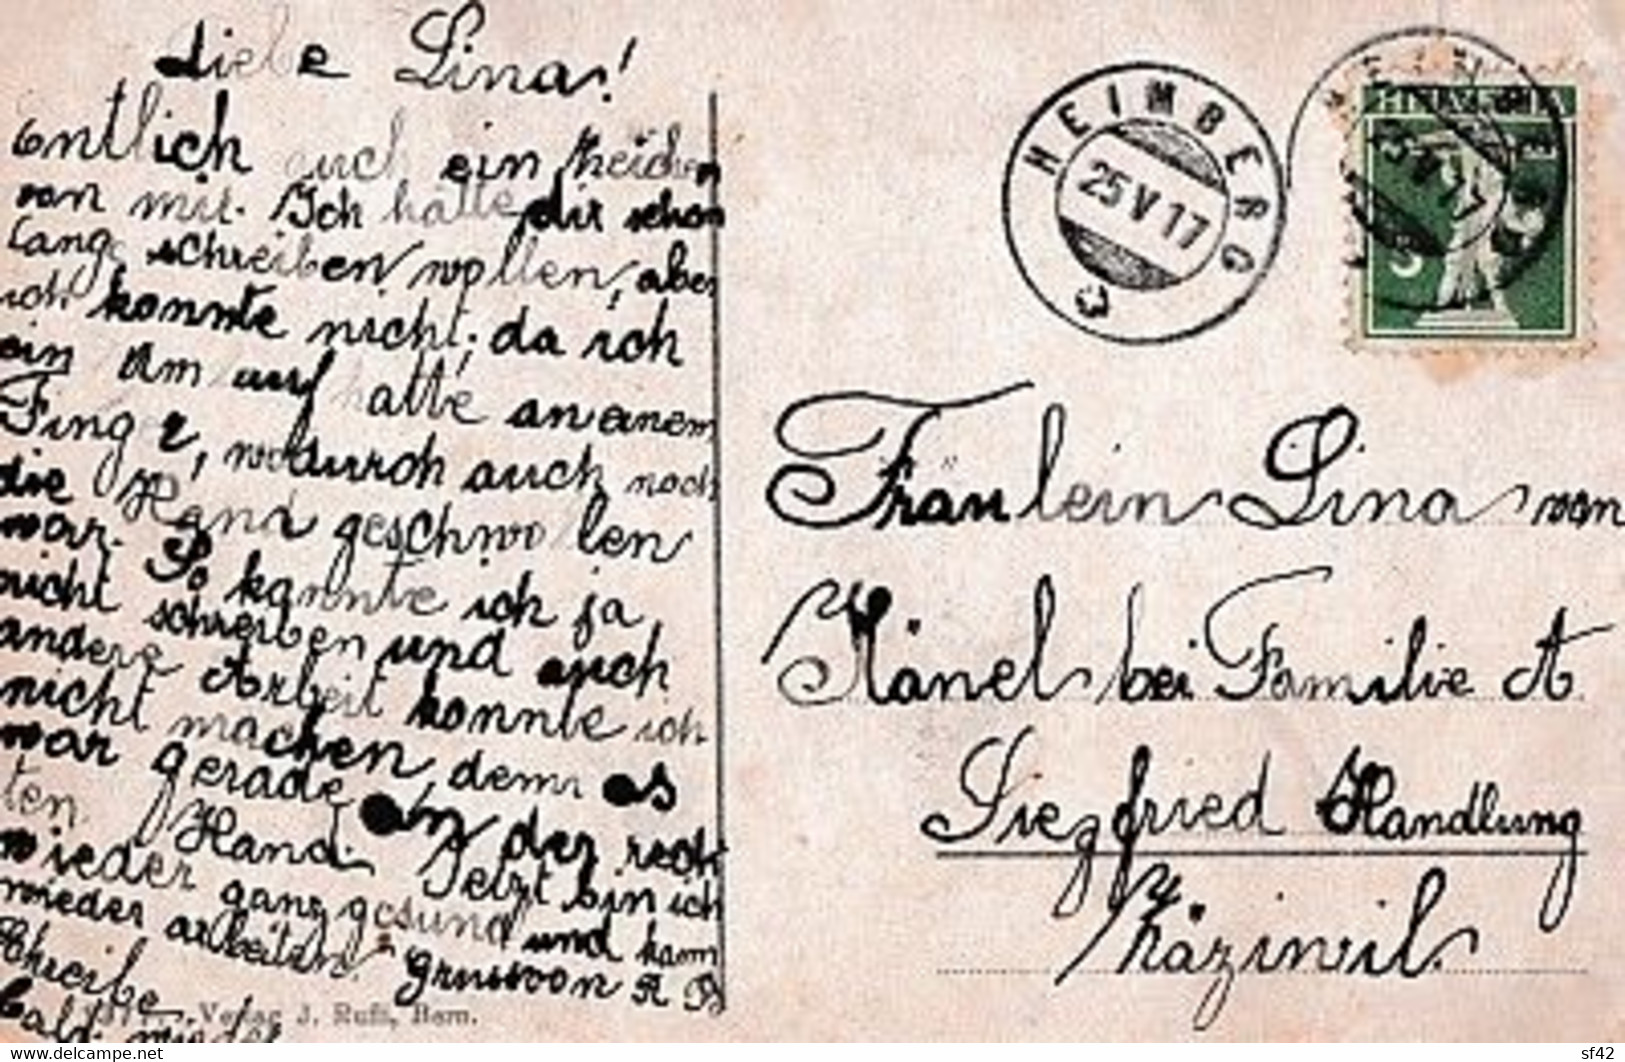 Liebe Lina!
Entlich auch ein Zeichen
von mir. Ich hatte dir schon
lang schreiben wollen, aber
ich konnte nicht, da ich
ein Um auf hatte an einem
Finger, wodurch auch noch
die Hand geschwollen
war. So konnte ich ja
nicht schreiben und auch
andere Arbeit konnte ich
nicht machen, denn es
war gerade an der rech
ten Hand. Jetzt bin ich
wieder ganz gesund und kann
wieder arbeiten. Gruss von R B
Schreibe
bald wieder
Verlag J. Rufli, Bern.
HEIMBERG
25 V 17
HELVETIA
5
Fräulein Lina von
Känel bei Familie A
Siegfried Handlung
Häziwil.